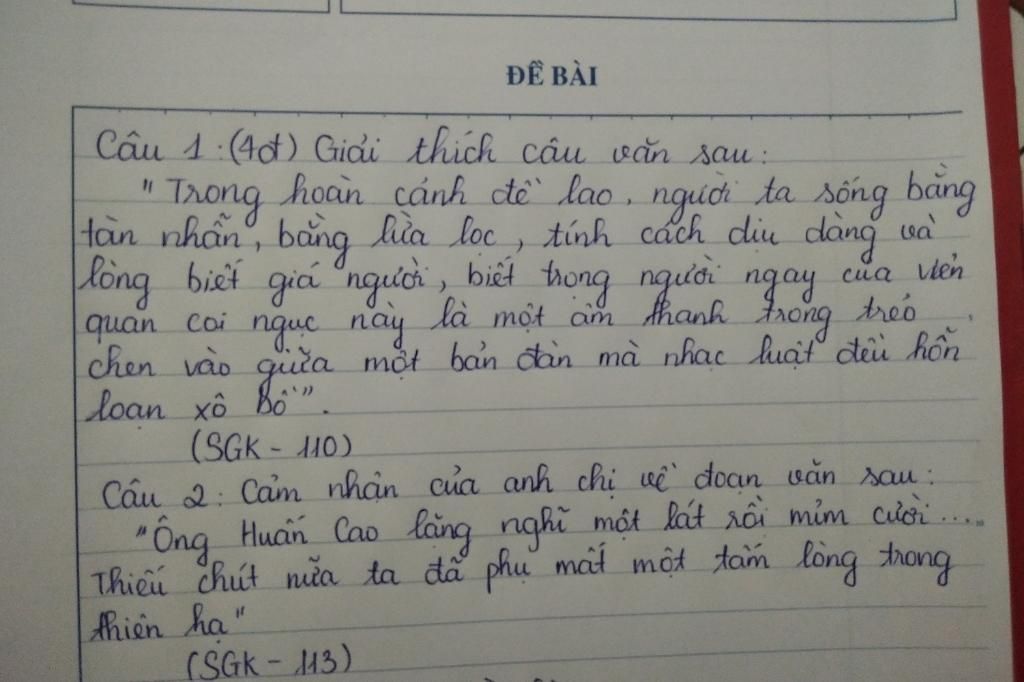 ĐỀ BÀI
Câu 1: (4đ) Giải thích câu văn sau:
"Trong hoàn cảnh đề lao, người ta sống bằng
tàn nhẫn, bằng lừa lọc, tính cách dịu dàng và
lòng biết giá người, biết trọng người ngay của viên
quan coi ngục này là một âm thanh trong trẻo
chen vào giữa một bản đàn mà nhạc luật đều hỗn
loạn xô bồ".
(SGK - 110)
Câu 2: Cảm nhận của anh chị về đoạn văn sau:
"Ông Huấn Cao lặng nghĩ một lát rồi mỉm cười.....
Thiếu chút nữa ta đã phụ mất một tấm lòng trong
thiên hạ"
(SGK - 113)